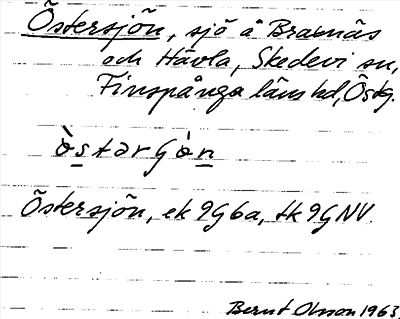 Östersjön, sjö å Brabnäs
och Hävla, Skedevi sn,
Finspånga läns hd, Östg.
ò̀stərgò̀n
Östersjön, ek 9G6a, tk 9GNV.
Bernt Olsson 1963.